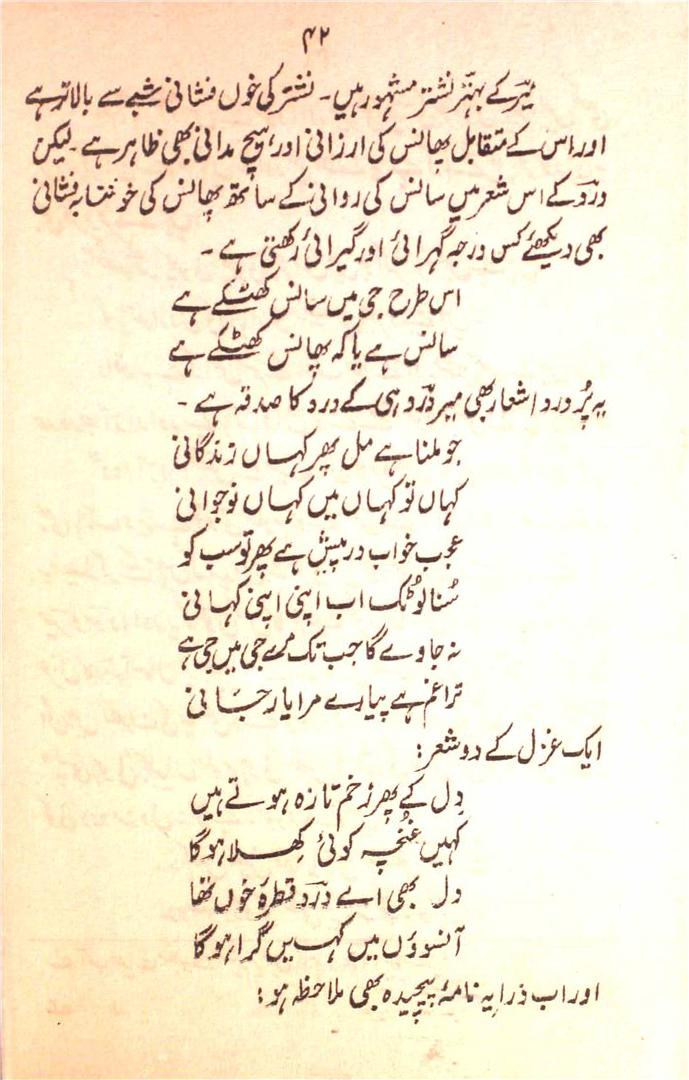 ۴۲
میرؔ کے بہتّر نشتر مشہور ہیں۔ نشتر کی خوں فشانی شبہے سے بالاتر ہے
اور اس کے متقابل پھانس کی ارزانی اور ہیچ مدانی بھی ظاہر ہے۔ لیکن
دردؔ کے اس شعر میں سانس کی روانی کے ساتھ پھانس کی خونتابہ فشانی
بھی دیکھئے کس درجہ گہرائی اور گیرائی رکھتی ہے۔
اس طرح جی میں سانس کھٹکے ہے
سانس ہے یا کہ پھانس کھٹکے ہے
یہ پُر درد اشعار بھی میر دردؔ ہی کے درد کا صدقہ ہے۔
جو ملنا ہے مل پھر کہاں زندگانی
کہاں تو کہاں میں کہاں نوجوانی
عجب خواب درپیش ہے پھر تو سب کو
سُنا لو ٹُک اب اپنی اپنی کہانی
نہ جاوے گا جب تک مرے جی میں جی ہے
ترا غم ہے پیارے مرا یار جانی
ایک غزل کے دو شعر:
دِل کے پھر زخم تازہ ہوتے ہیں
کہیں غُنچہ کوئی کِھلا ہوگا
دل بھی اے دردؔ قطرۂ خوں تھا
آنسوؤں میں کہیں گرا ہوگا
اور اب ذرا یہ نامۂ پیچیدہ بھی ملاحظہ ہو: